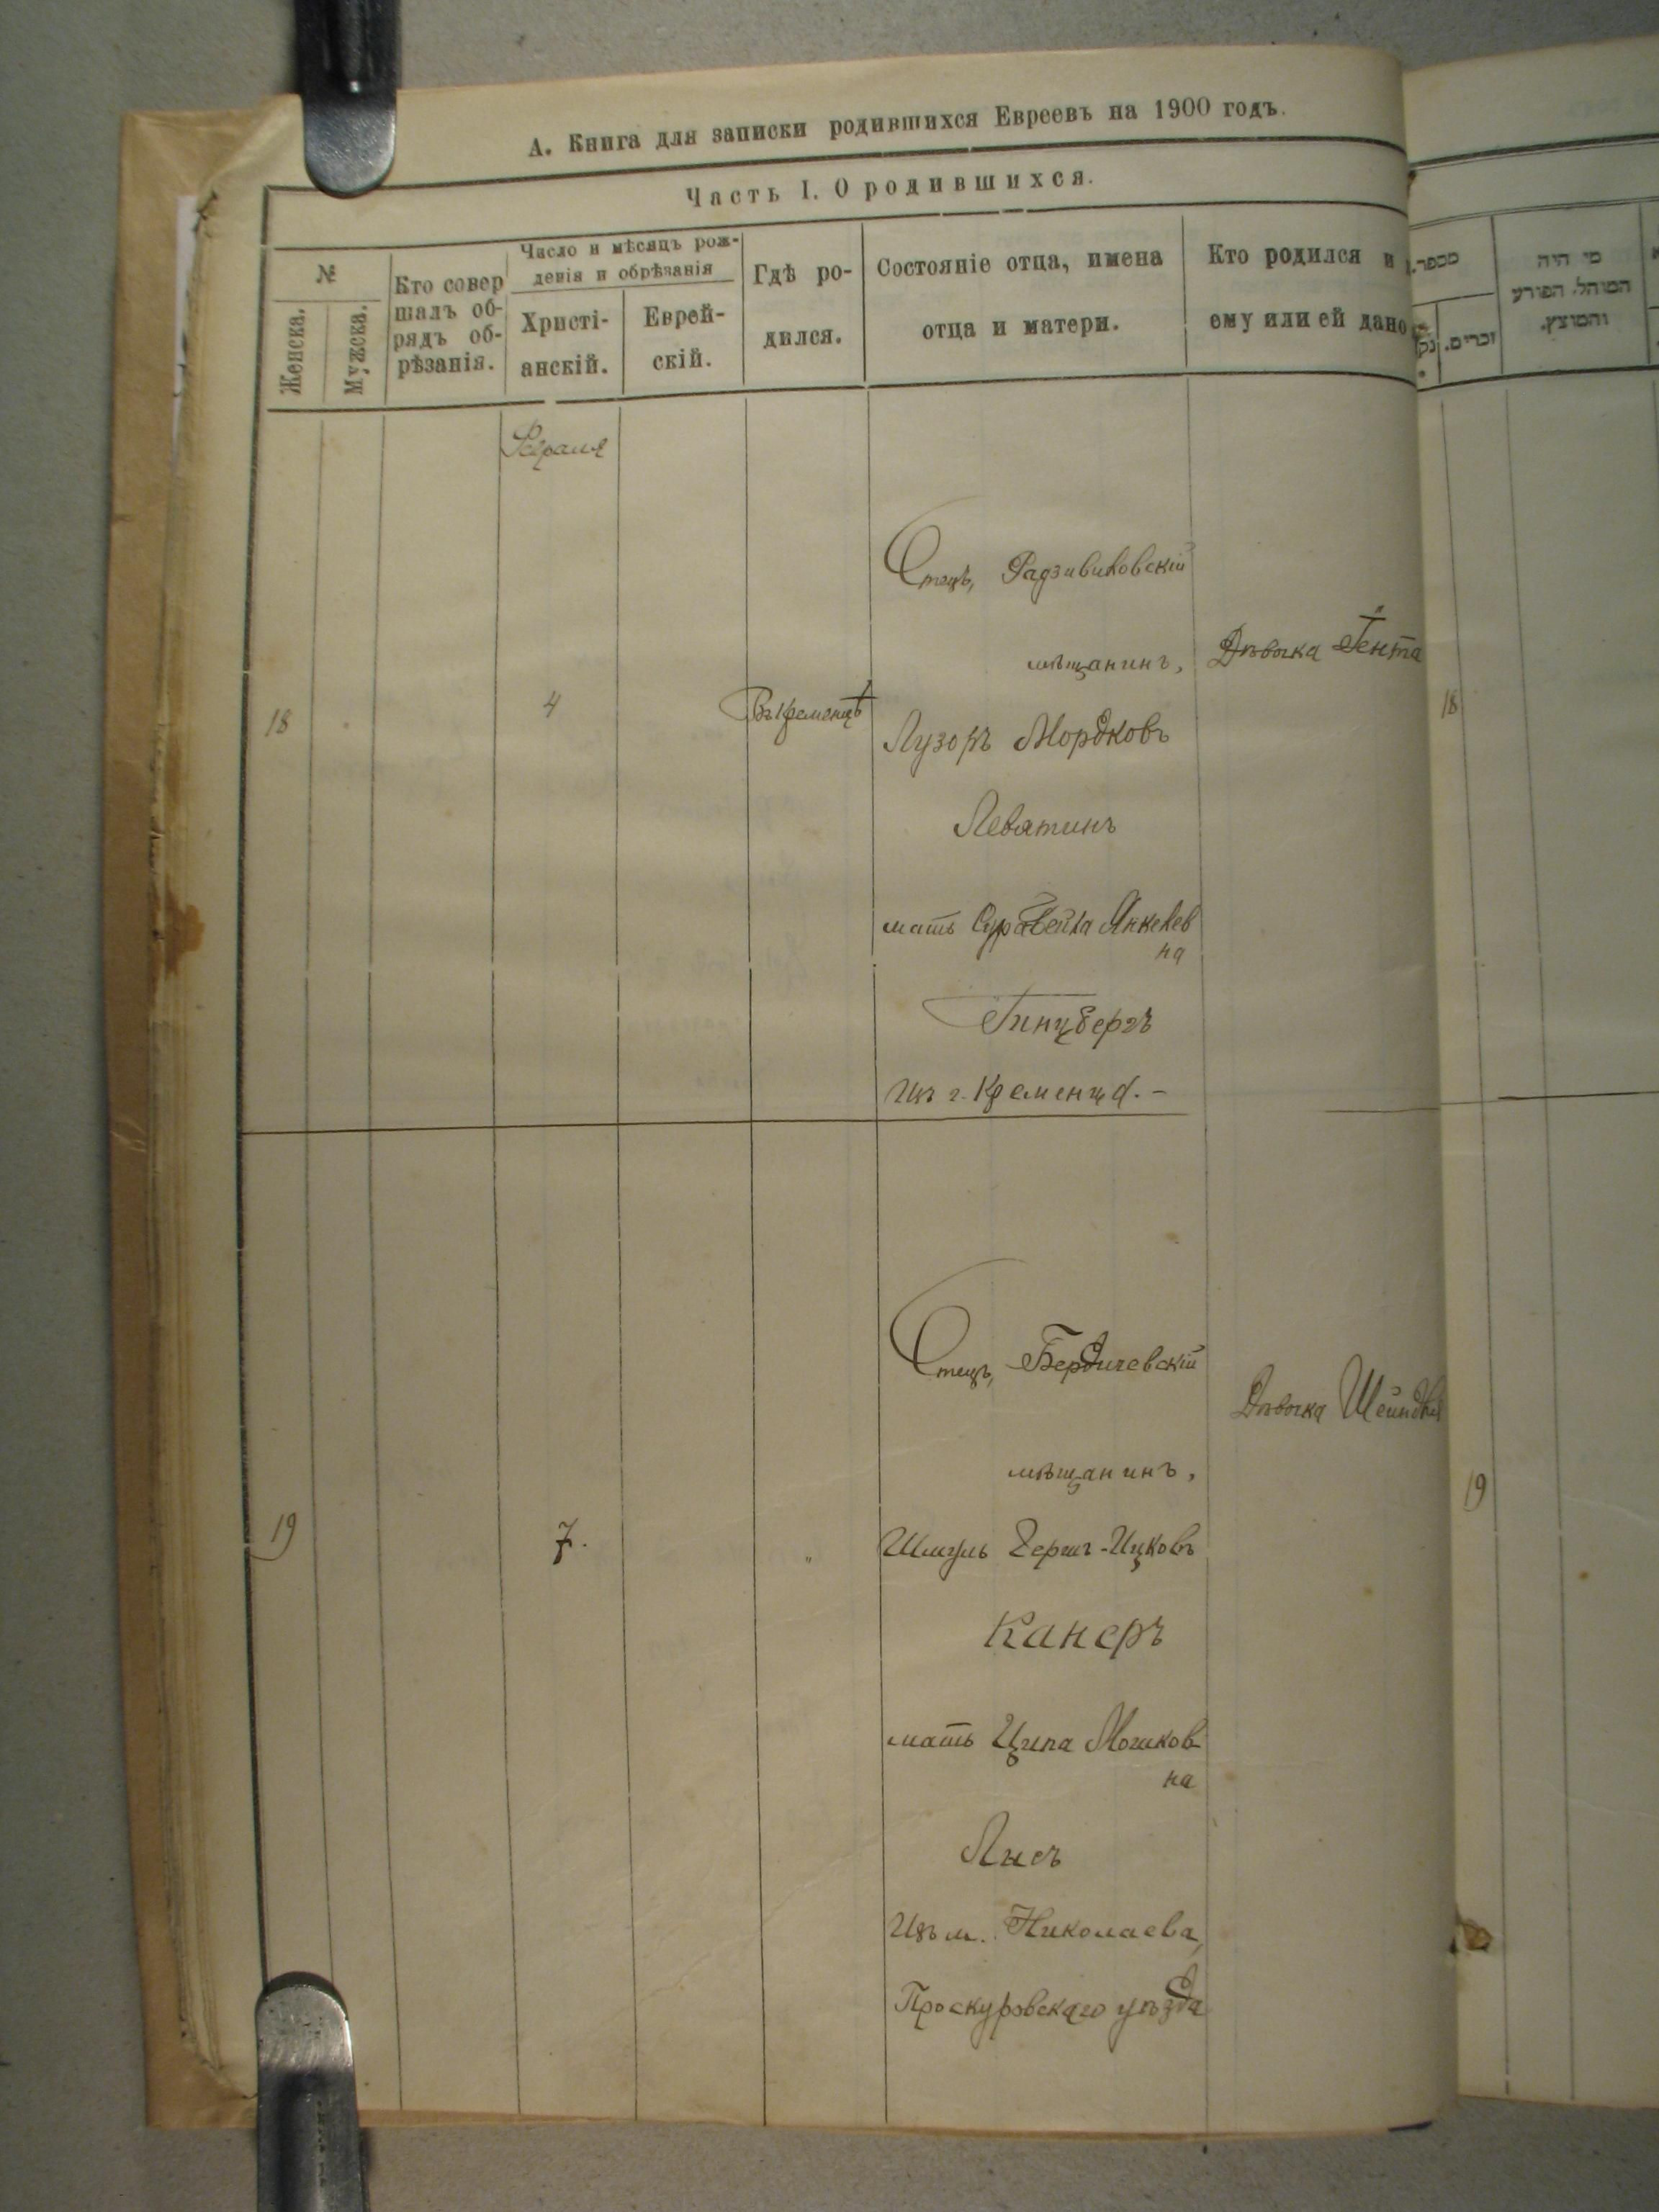 А. Книга для записки родившихся Евреевъ на 1900 годъ.
Часть I. О родившихся.
№
Женска.
Мужска.
Кто совер
шалъ об-
рядъ об-
рѣзанія.
Число и мѣсяцъ рож-
денія и обрѣзанія
Христі-
анскій.
Еврей-
скій.
Гдѣ ро-
дился.
Состояніе отца, имена
отца и матери.
Кто родился и
ему или ей дано
מספר.
זכרים.
מי היה
המוהל, הפורע
והמוצץ.
Февраля
18
4
Въ Кременцѣ
Отецъ, Радзивиловскій
мѣщанинъ,
Лузоръ Мордковъ
Леватинъ
мать Сура Бейла Янкелев
на
Гинцбергъ
Изъ г. Кременца. -
Дѣвочка Гента
18
19
7.
"
Отецъ, Бердичевскій
мѣщанинъ,
Шмуль Гершъ-Ицковъ
Канеръ
мать Ципа Мошков-
на
Лисъ
Изъ м. Николаева,
Проскуровскаго уѣзда
Дѣвочка Шейндля
19